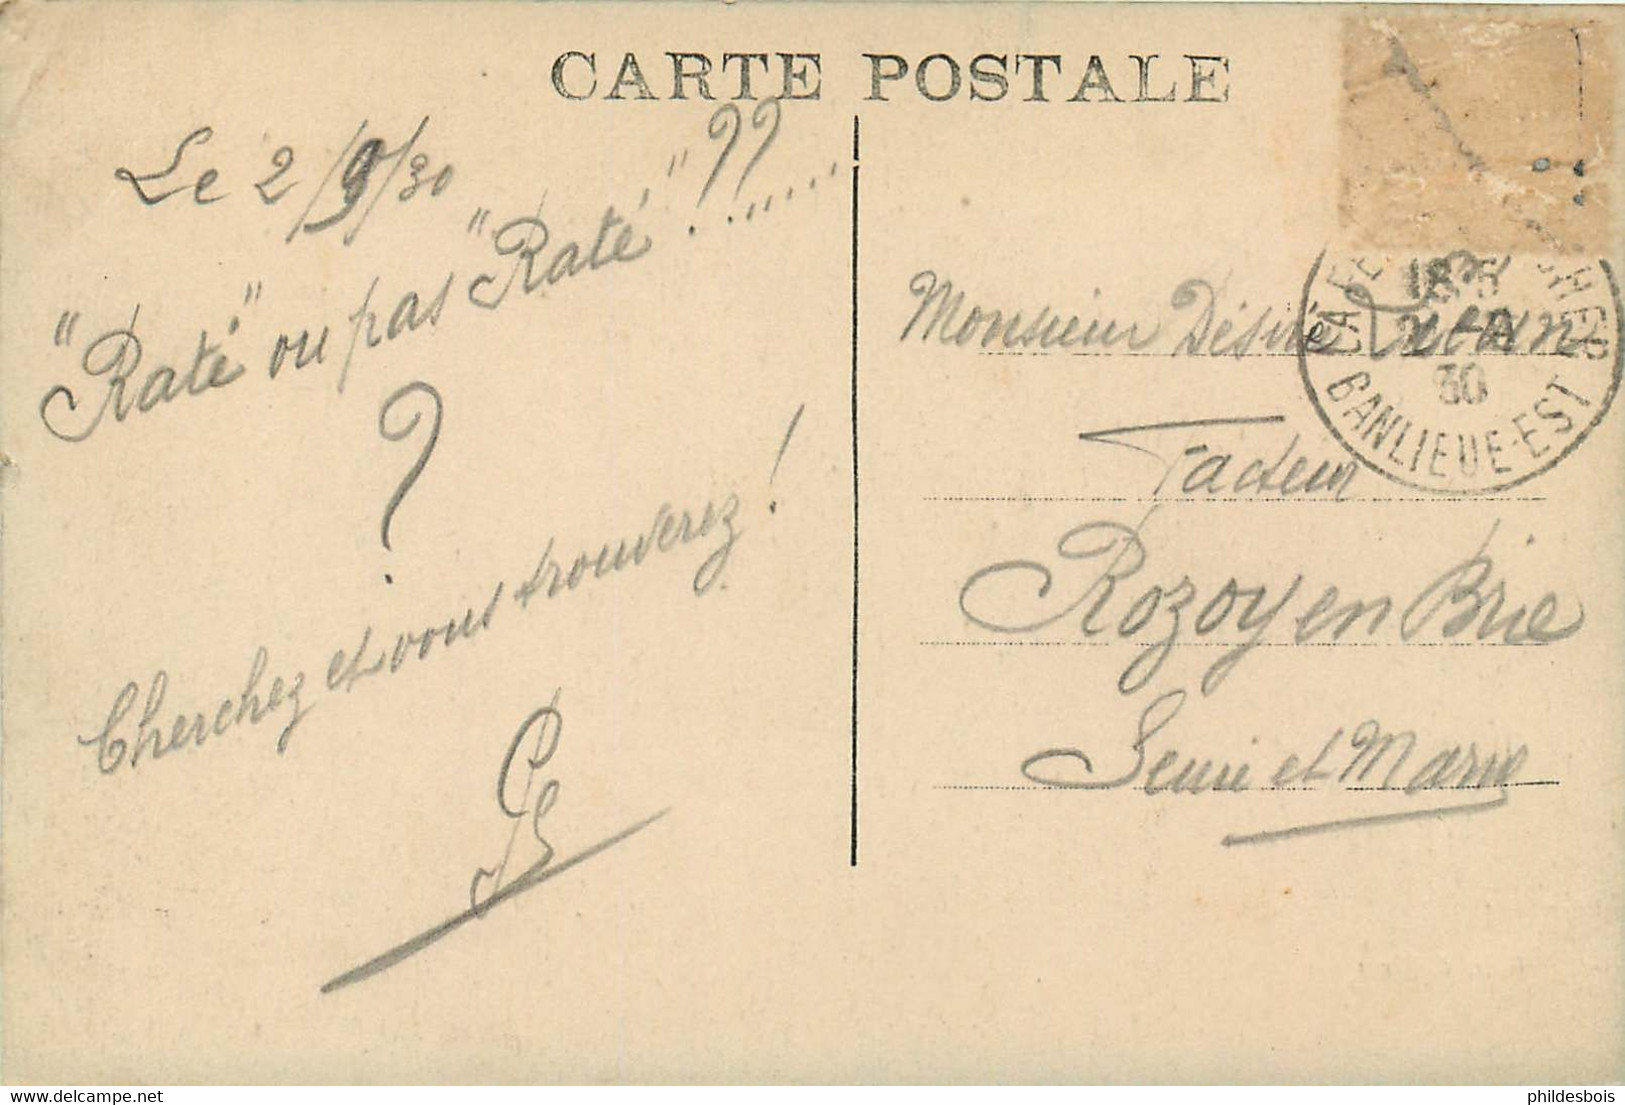 CARTE POSTALE
Le 2/9/30
"Raté" ou pas "Raté"!??......
?
Cherchez et vous trouverez!
Monsieur Désiré
Facteur
Rozoy en Brie
Seine et Marne
18 35
2-9
30
BANLIEUE-EST
delcampe.net
phildesbois